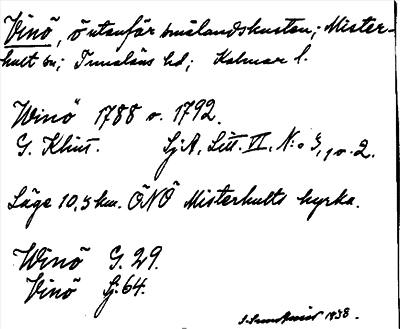 Vinö, ö utanför smålandskusten; Mister-
hult sn; Tunaläns hd; Kalmar l.
Winö 1788 o. 1792.
G. Klint. Sj.A, Litt. VI, N:o 3, 1 o. 2.
Läge 10,5 km. ÖNÖ Misterhults kyrka.
Winö G. 29.
Vinö Sj. 64.
1938.